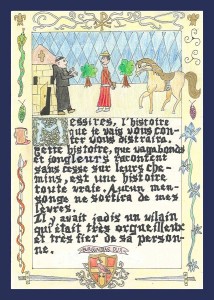 Messires, l'histoire
que je vais vous con-
ter vous distraira.
Cette histoire, que vagabonds
et jongleurs racontent
sans cesse sur leurs che-
mins, est une histoire
toute vraie. Aucun men-
songe ne sortira de mes
lèvres.
Il y avait jadis un vilain
qui était très orgueilleux
et très fier de sa person-
ne.